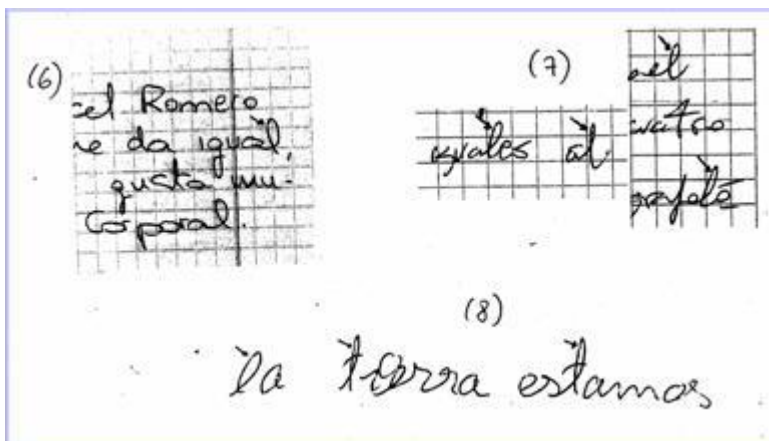 (6)
cel Romero
me da igual,
gusta mu-
Corporal.
(7)
iguales al
ael
cuatro
(8)
la tierra estamos